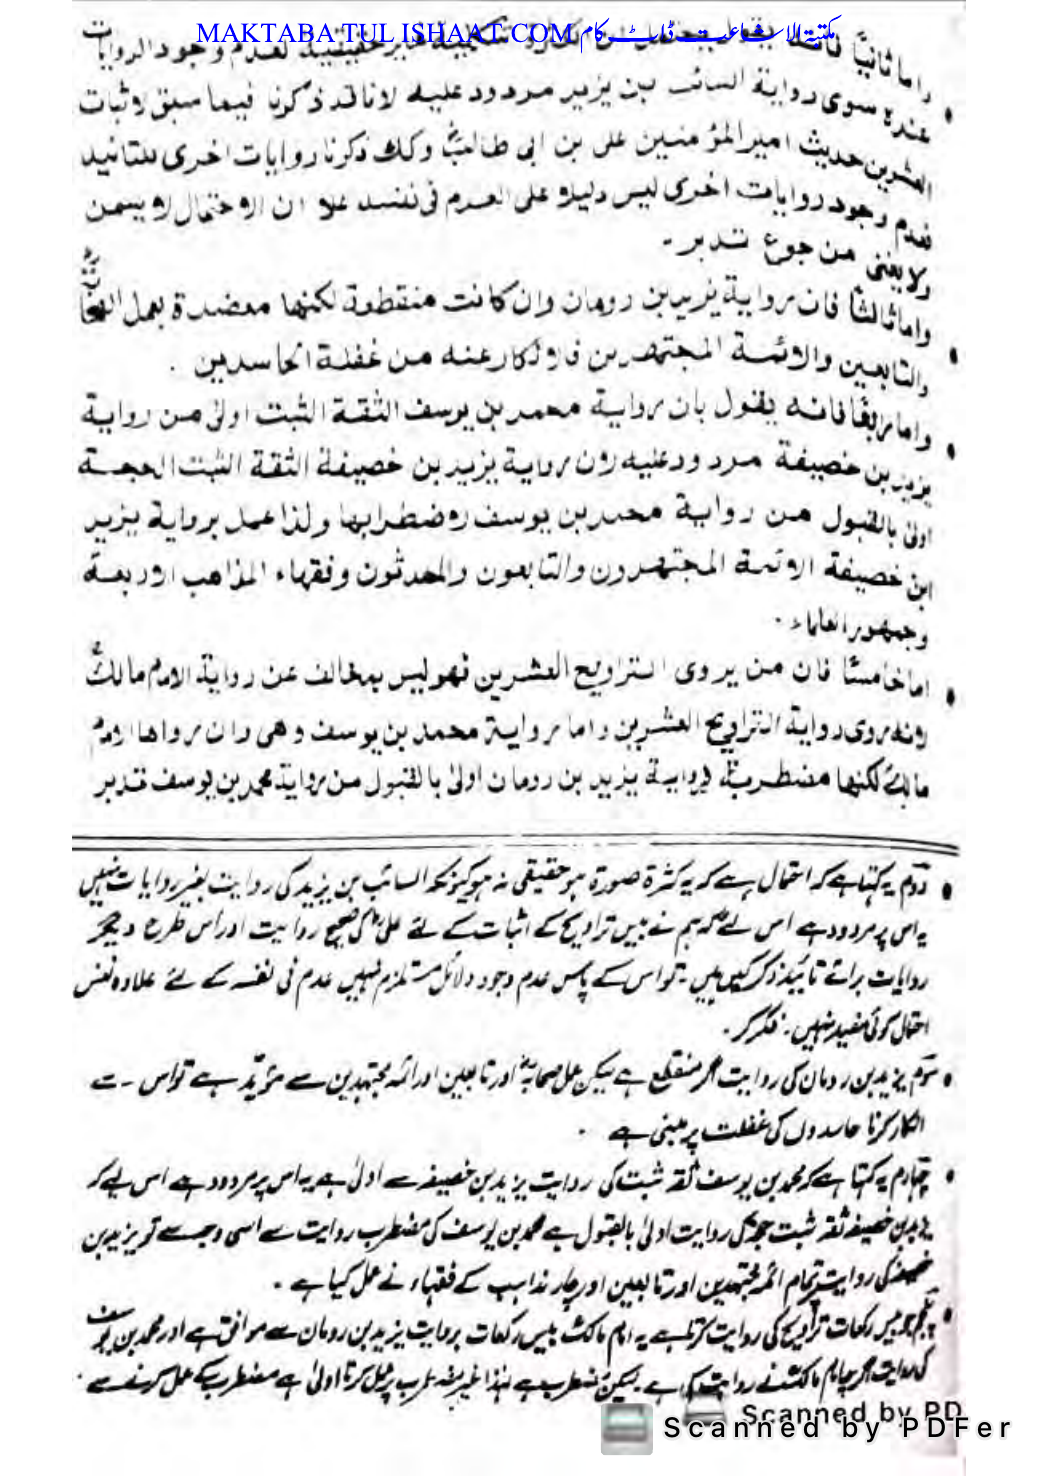 MAKTABA TUL ISHAAT.COM مکتبۃ الاشاعت ڈاٹ کام
واما ثانياً لعدم وجود الروايات
عنده سوى رواية السائب بن يزيد مردود عليه لانا قد ذكرنا فيما سبق لاثبات
العشرين حديث امير المؤمنين على بن ابى طالبؓ وكك ذكرنا روايات اخرى للتائيد
فعدم وجود روايات اخرى ليس دليلا على العدم فى نفسه علا ان الاحتمال لا يسمن
ولا يغنى من جوع تدبر۔
واما ثالثاً فان رواية يزيد بن رومان وان كانت منقطعة لكنها معضدة بعمل الصحابةؓ
والتابعين والائمة المجتهدين فالانكار عنه من غفلة الحاسدين .
واما رابعًا فانه يقول بان رواية محمد بن يوسف الثقة الثبت اولىٰ من رواية
يزيد بن خصيفة مردود عليه لان رواية يزيد بن خصيفة الثقة الثبت الحجة
اولىٰ بالقبول من رواية محمد بن يوسف لاضطرابها ولذا عمل برواية يزيد
ابن خصيفة الائمة المجتهدون والتابعون والمحدثون وفقهاء المذاهب الاربعة
وجمهور العلماء .
اما خامسًا فان من يروى التراويح العشرين فهو ليس بمخالف عن رواية الامام مالكؒ
لانه روى رواية التراويح العشرين واما رواية محمد بن يوسف وهى وان رواها الامام
مالكؒ لكنها مضطربة فرواية يزيد بن رومان اولىٰ بالقبول من رواية محمد بن يوسف تدبر
دوّم یہ کہتا ہے کہ احتمال ہے کہ یہ کثرۃ صورۃ ہو حقیقی نہ ہو کیونکہ السائب بن یزید کی روایت بغیر روایات نہیں
یہ اس پر مردود ہے اس لئے کہ ہم نے بیس تراویح کے اثبات کے لئے علیؓ کی صحیح روایت اور اس طرح دیگر
روایات برائے تائید ذکر کیں ہیں۔ تو اس کے پاس عدم وجود دلائل مستلزم نہیں عدم فی نفسہ کے لئے علاوہ نفس
احتمال کوئی مفید نہیں۔ فکر کر۔
سوّم یزید بن رومان کی روایت اگر منقطع ہے لیکن عمل صحابہؓ اور تابعین اور ائمہ مجتہدین سے مؤیّد ہے تو اس سے
انکار کرنا حاسدوں کی غفلت پر مبنی ہے .
چہارم یہ کہتا ہے کہ محمد بن یوسف ثقہ ثبت کی روایت یزید بن خصیفہ سے اولیٰ ہے یہ اس پر مردود ہے اس لیے کہ
یزید بن خصیفہ ثقہ ثبت حجۃ کی روایت اولیٰ بالقبول ہے محمد بن یوسف کی مضطرب روایت سے اسی وجہ سے تو یزید بن
خصیفہ کی روایت پر تمام ائمہ مجتہدین اور تابعین اور چار مذاہب کے فقہاء نے عمل کیا ہے .
پنجم جو بیس رکعات تراویح کی روایت کرتا ہے یہ امام مالکؒ بیس رکعات بروایت یزید بن رومان سے موافق ہے اور محمد بن یوسف
کی روایت اگرچہ امام مالکؒ نے روایت کی ہے لیکن مضطرب ہے لہٰذا غیر مضطرب پر عمل کرنا اولیٰ ہے مضطرب کے عمل کرنے سے .
Scanned by PD
Scanned by PDFer